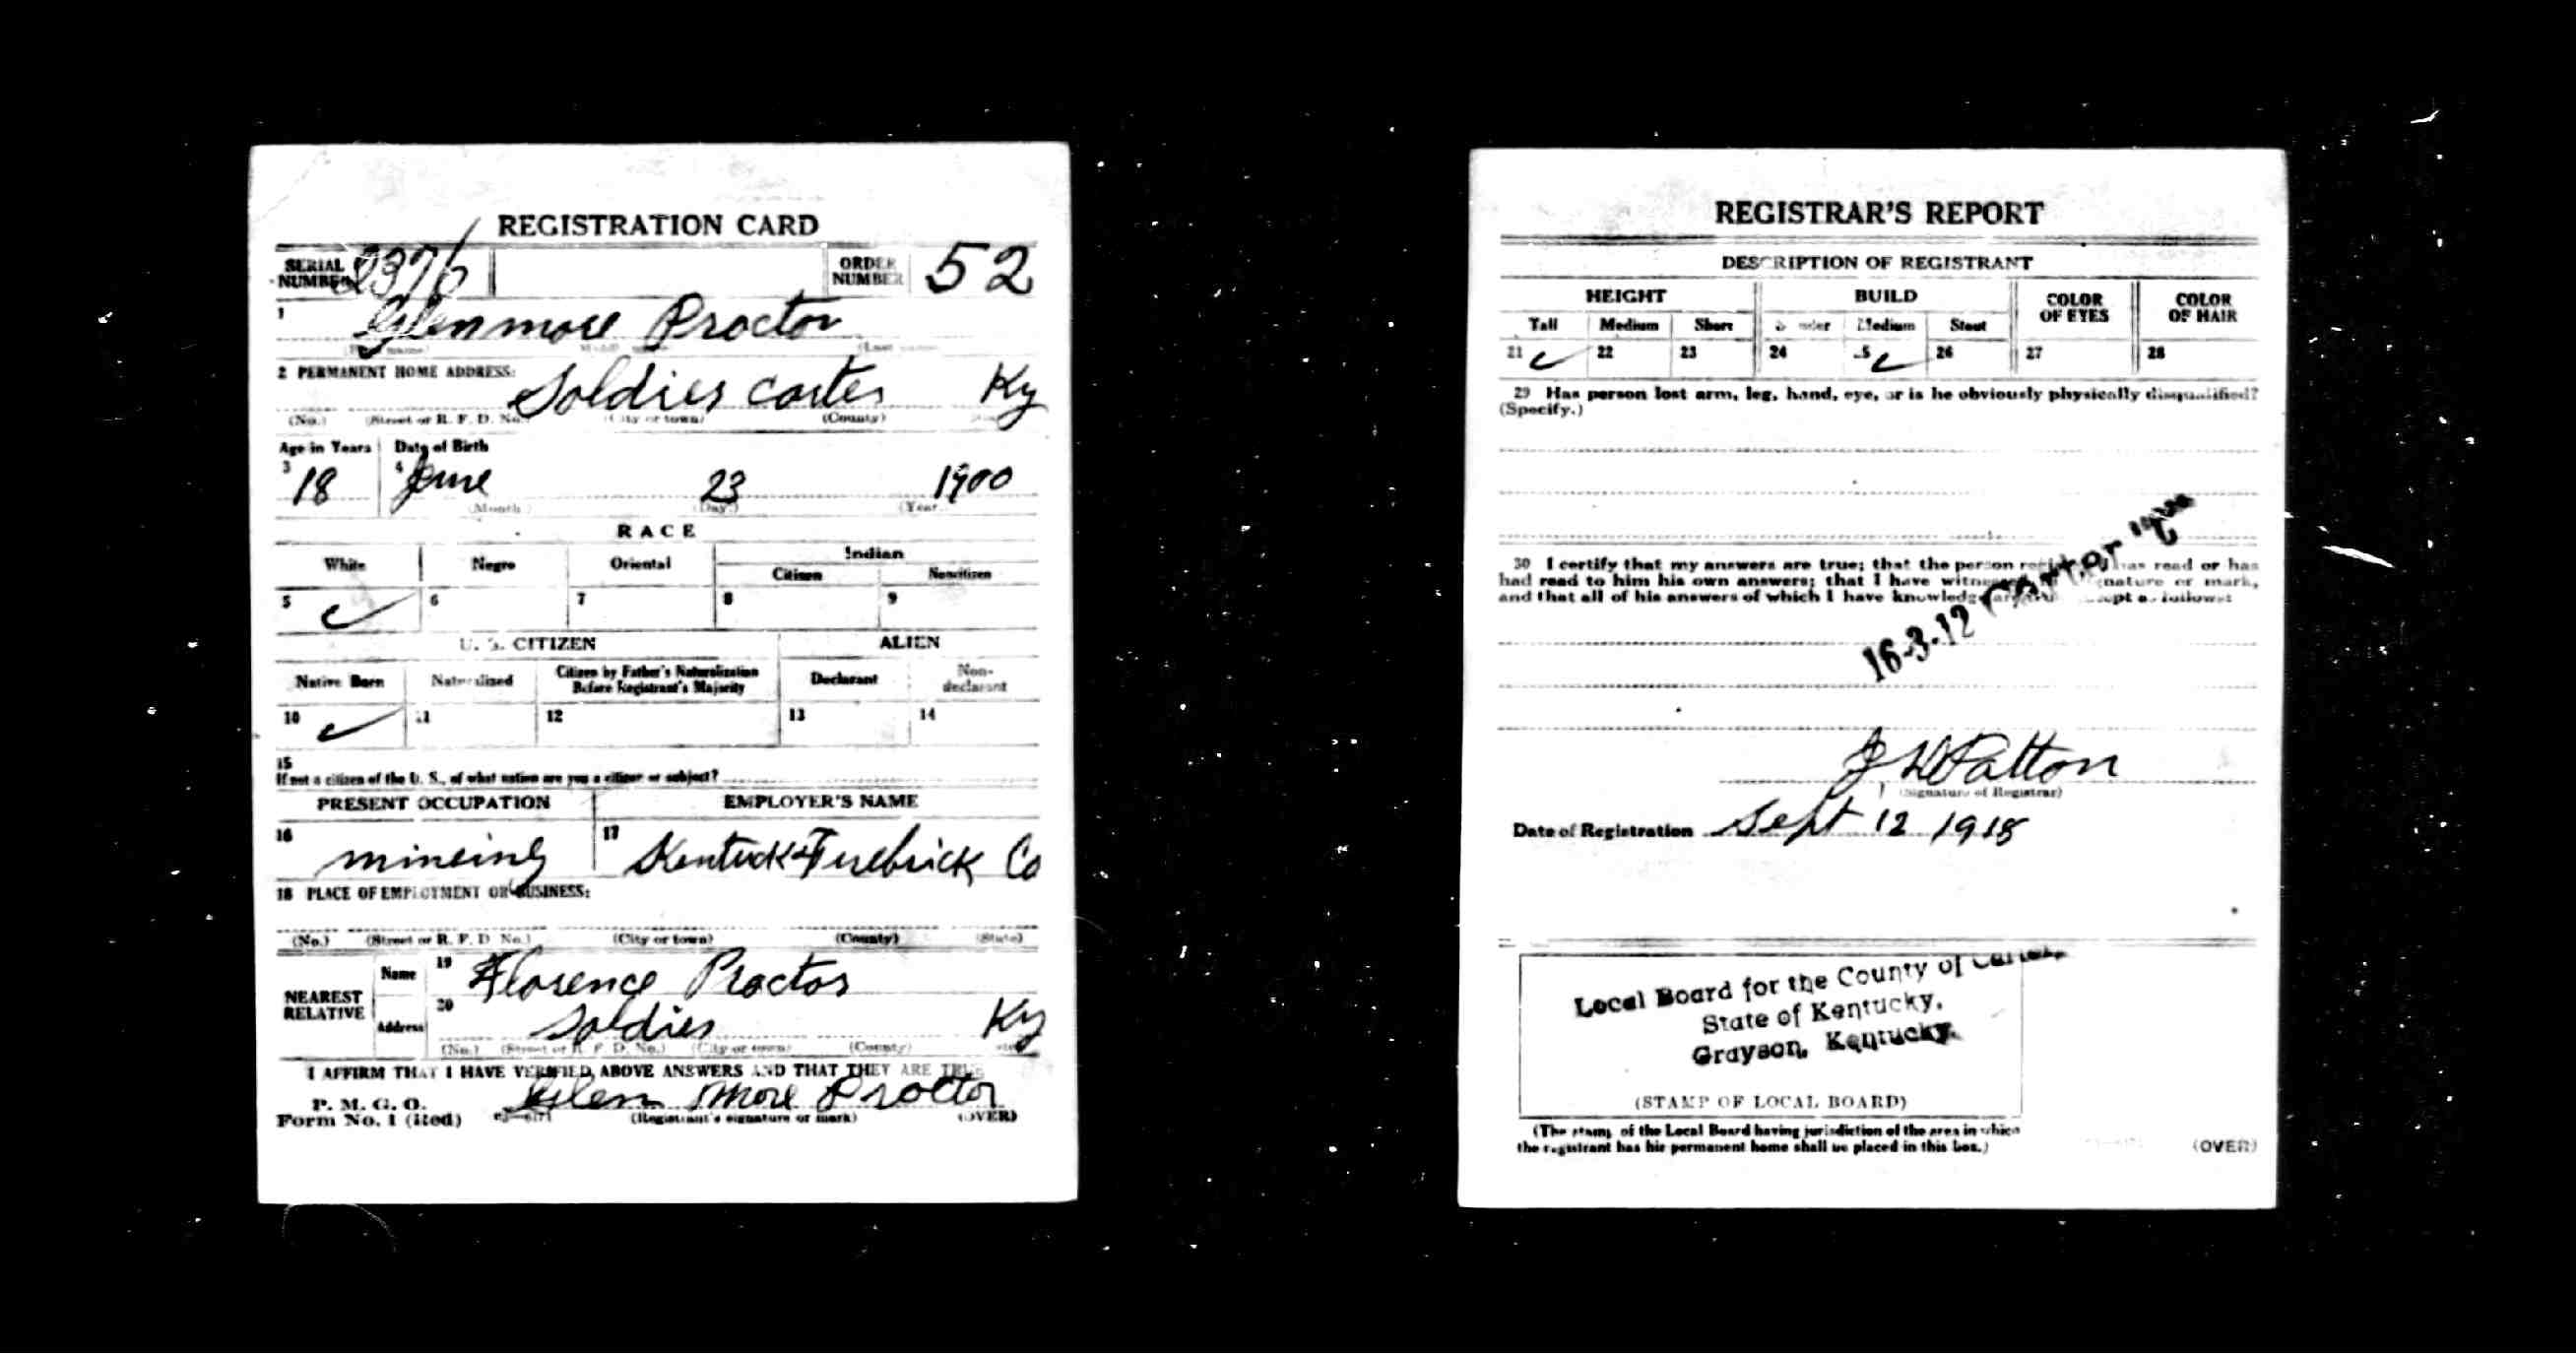 REGISTRATION CARD
SERIAL NUMBER 2376
ORDER NUMBER 52
1 Glenmore Proctor
(Last
2 PERMANENT HOME ADDRESS:
Soldier Carter Ky
(No.) (Street or R. F. D. No.) (City or town) (County)
Age in Years Date of Birth
3 18 4 June 23 1900
(Month) (Day.) (Year
RACE
White Negro Oriental Indian
Citizen Noncitizen
5 6 7 8 9
U. S. CITIZEN ALIEN
Native Born Naturalized Citizen by Father's Naturalization Before Registrant's Majority Declarant Non-declarant
10 11 12 13 14
15
If not a citizen of the U. S., of what nation are you a citizen or subject?
PRESENT OCCUPATION EMPLOYER'S NAME
16 mineing 17 Firebrick Co
18 PLACE OF EMPLOYMENT OR BUSINESS:
(No.) (Street or R. F. D No.) (City or town) (County) (State)
NEAREST RELATIVE
Name 19 Florence Proctor
Address 20 Soldier Ky
(No.) (Street or R. F. D. No.) (City or town) (County)
I AFFIRM THAT I HAVE VERIFIED ABOVE ANSWERS AND THAT THEY ARE TRUE
P. M. G. O.
Form No. 1 (Red)
Glen more Proctor
(Registrant's signature or mark) (OVER)
REGISTRAR'S REPORT
DESCRIPTION OF REGISTRANT
HEIGHT BUILD COLOR OF EYES COLOR OF HAIR
Tall Medium Short Slender Medium Stout
21 22 23 24 25 26 27 28
29 Has person lost arm, leg, hand, eye, or is he obviously physically disqualified?
(Specify.)
30 I certify that my answers are true; that the person has read or has
had read to him his own answers; that I have signature or mark,
and that all of his answers of which I have knowledge
16-3-12 Carter
J W Patton
(Signature of Registrar)
Date of Registration Sept 12 1918
Local Board for the County of Carter,
State of Kentucky,
Grayson, Kentucky.
(STAMP OF LOCAL BOARD)
(The stamp of the Local Board having jurisdiction of the area in which
the registrant has his permanent home shall be placed in this box.)
(OVER)